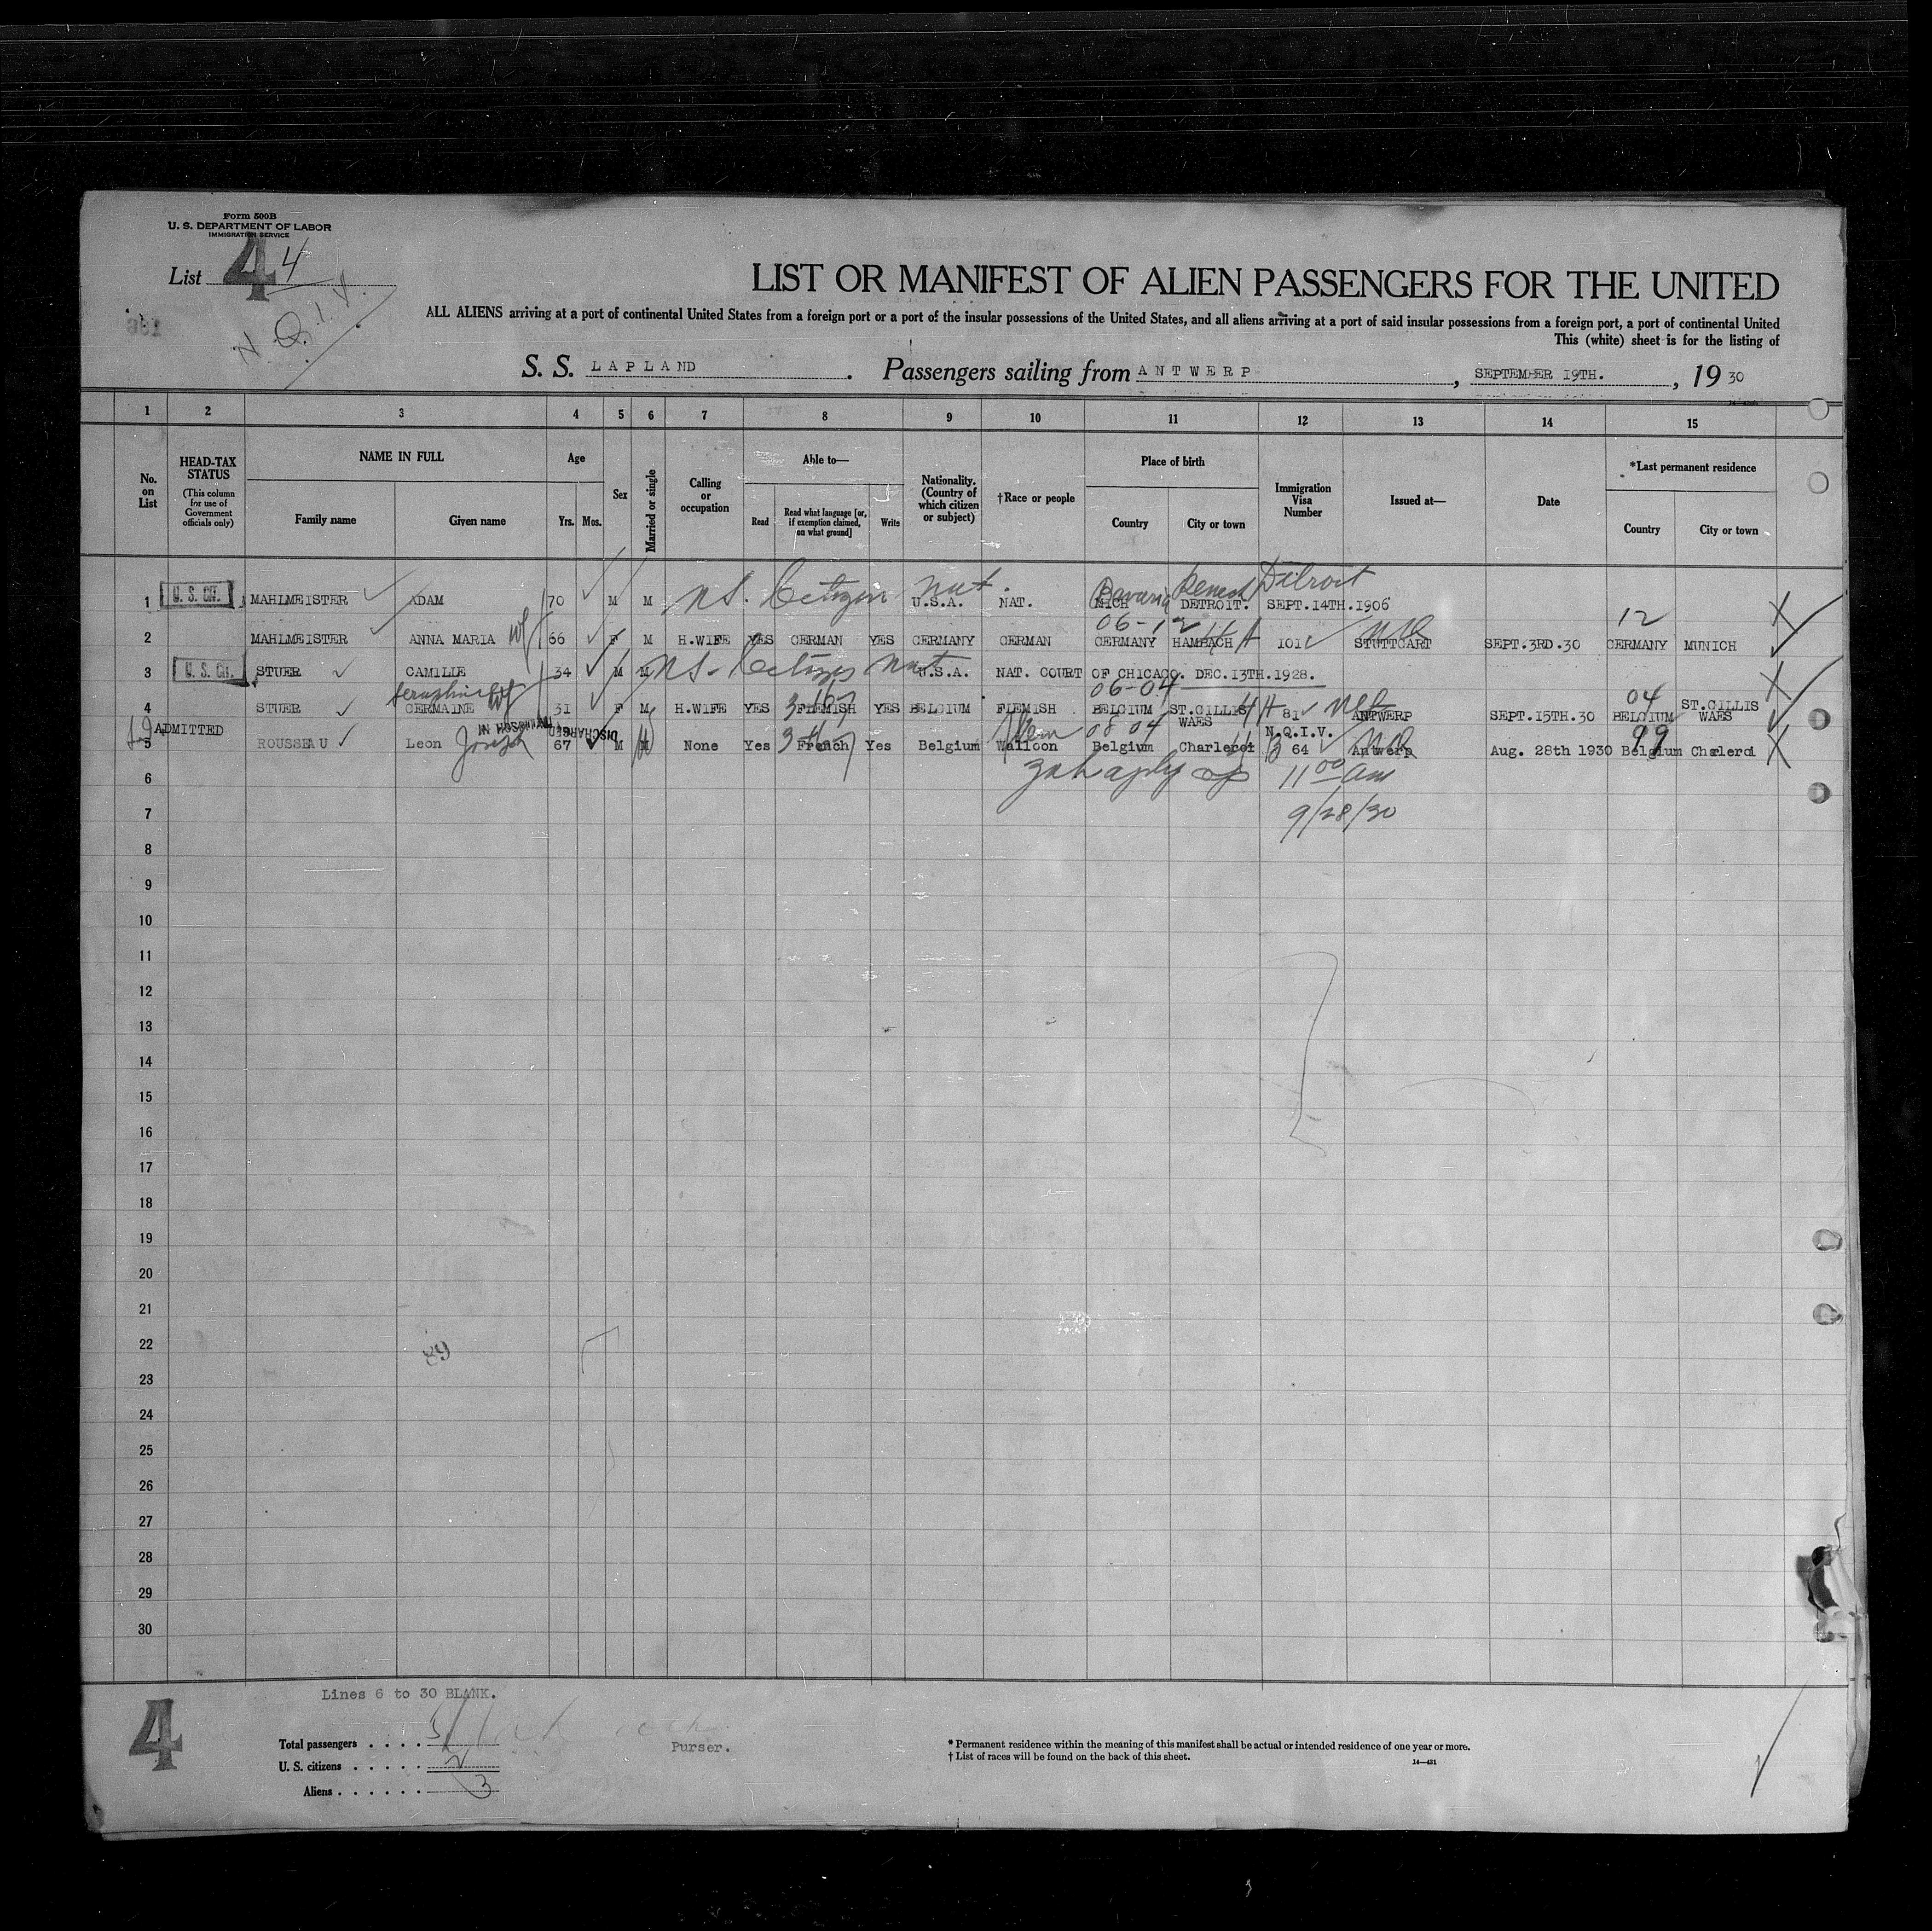 Form 500B
U. S. DEPARTMENT OF LABOR
IMMIGRATION SERVICE
List 4 4
N. Q. I. V.
LIST OR MANIFEST OF ALIEN PASSENGERS FOR THE UNITED
ALL ALIENS arriving at a port of continental United States from a foreign port or a port of the insular possessions of the United States, and all aliens arriving at a port of said insular possessions from a foreign port, a port of continental United
This (white) sheet is for the listing of
S. S. LAPLAND. Passengers sailing from ANTWERP, SEPTEMBER 19TH., 19 30
1 2 3 4 5 6 7 8 9 10 11 12 13 14 15
No. on List
HEAD-TAX STATUS
(This column for use of Government officials only)
NAME IN FULL
Family name
Given name
Age
Yrs. Mos.
Sex
Married or single
Calling or occupation
Able to—
Read
Read what language [or, if exemption claimed, on what ground]
Write
Nationality. (Country of which citizen or subject)
†Race or people
Place of birth
Country
City or town
Immigration Visa Number
Issued at—
Date
*Last permanent residence
Country
City or town
Bavaria Detroit
1 U. S. CH. MAHLMEISTER ADAM 70 M M Citizen nat. U.S.A. NAT. MICH DETROIT. SEPT.14TH.1906
06-12 12
2 MAHLMEISTER ANNA MARIA wf 66 F M H.WIFE YES GERMAN YES GERMANY GERMAN GERMANY HAMBACH 101 STUTTGART SEPT.3RD.30 GERMANY MUNICH
3 U. S. CH. STUER CAMILLE 34 M M Citizen nat U.S.A. NAT. COURT OF CHICAGO. DEC.13TH.1928.
06-04 04
4 STUER GERMAINE wf 31 F M H.WIFE YES FLEMISH YES BELGIUM FLEMISH BELGIUM ST.GILLIS WAES 81 ANTWERP SEPT.15TH.30 BELGIUM ST.GILLIS WAES
ADMITTED DISCHARGED 08 04 N.Q.I.V. 99
5 ROUSSEAU Leon Joseph 67 M None Yes French Yes Belgium Walloon Belgium Charleroi 64 Antwerp Aug. 28th 1930 Belgium Charleroi
6 11 00 am
7 9/28/30
8
9
10
11
12
13
14
15
16
17
18
19
20
21
22
89
23
24
25
26
27
28
29
30
Lines 6 to 30 BLANK.
4
Total passengers . . . . 5
U. S. citizens . . . . . 2
Aliens . . . . . . 3
Purser.
* Permanent residence within the meaning of this manifest shall be actual or intended residence of one year or more.
† List of races will be found on the back of this sheet.
14—431